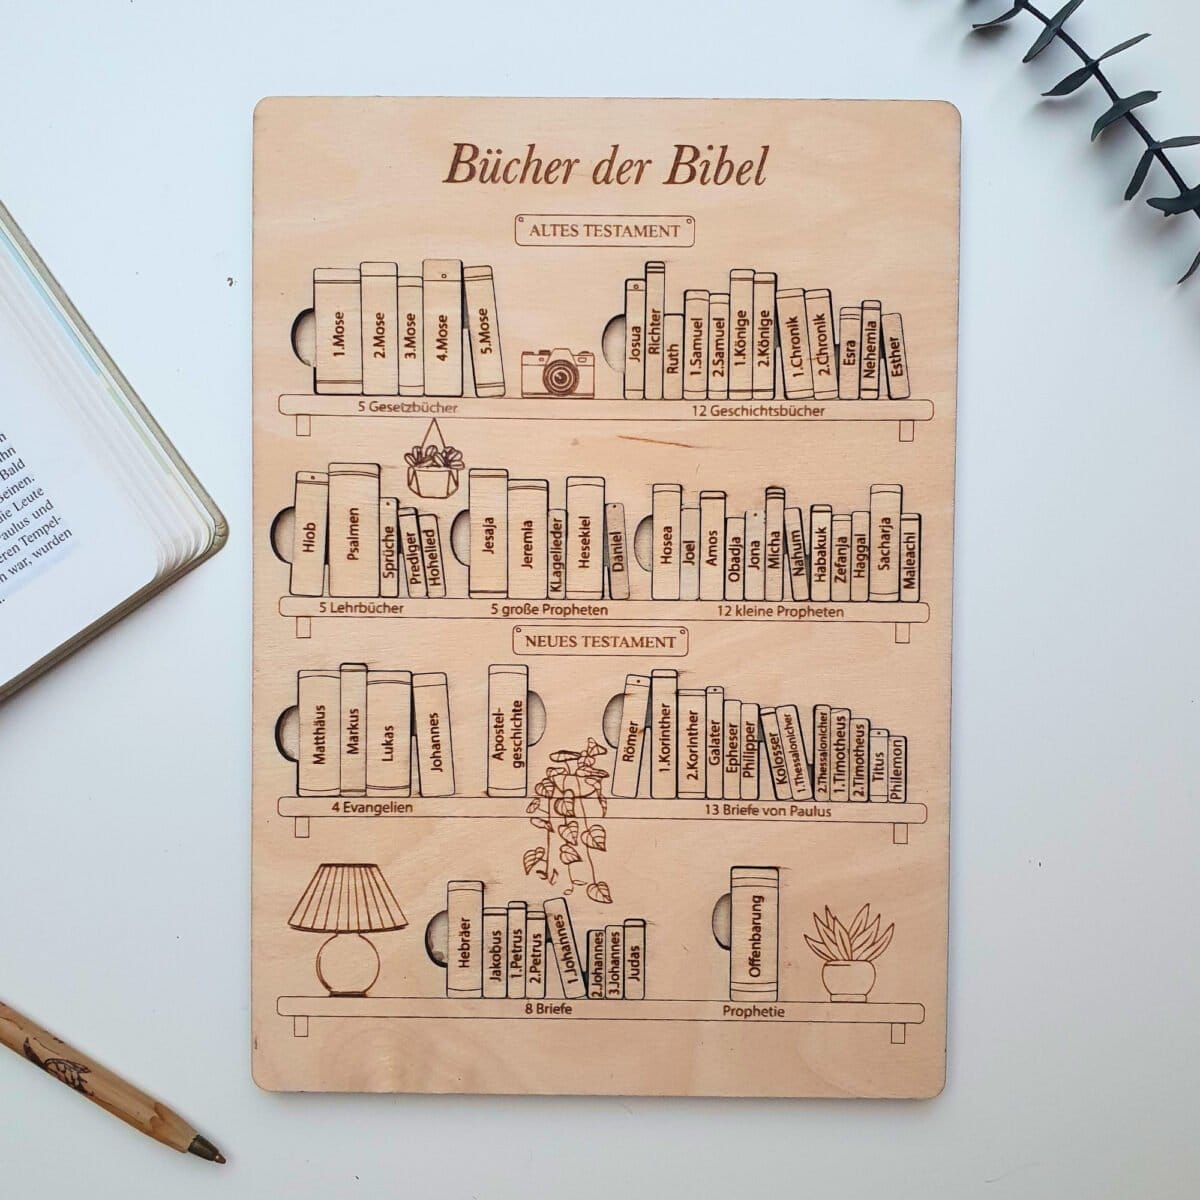 Bücher der Bibel
ALTES TESTAMENT
1.Mose
2.Mose
3.Mose
4.Mose
5.Mose
Josua
Richter
Ruth
1.Samuel
2.Samuel
1.Könige
2.Könige
1.Chronik
2.Chronik
Esra
Nehemia
Esther
5 Gesetzbücher
12 Geschichtsbücher
Hiob
Psalmen
Sprüche
Prediger
Hohelied
Jesaja
Jeremia
KLagelieder
Hesekiel
Daniel
Hosea
Joel
Amos
Obadja
Jona
Micha
Nahum
Habakuk
Zefanja
Haggai
Sacharja
Maleachi
5 Lehrbücher
5 große Propheten
12 kleine Propheten
NEUES TESTAMENT
Matthäus
Markus
Lukas
Johannes
Apostel-
geschichte
Römer
1.Korinther
2.Korinther
Galater
Epheser
Philipper
Kolosser
1.Thessalonicher
2.Thessalonicher
1.Timotheus
2.Timotheus
Titus
Philemon
4 Evangelien
13 Briefe von Paulus
Hebräer
Jakobus
1.Petrus
2.Petrus
1.Johannes
2.Johannes
3.Johannes
Judas
Offenbarung
8 Briefe
Prophetie
Bald
Beinen.
die Leute
Paulus und
eren Tempel-
n war, wurden